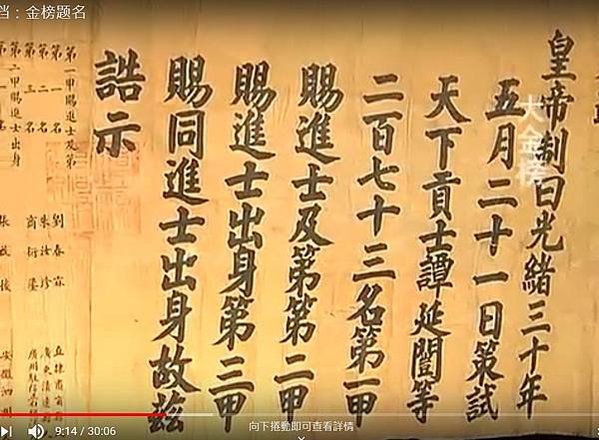 当：金榜题名
皇帝制曰光緒三十年
五月二十一日策試
天下貢士譚延闓等
二百七十三名第一甲
賜進士及第第二甲
賜進士出身第三甲
賜同進士出身故茲
誥示
第一甲賜進士及第
第一名 劉春霖 直隸肅
第二名 朱汝珍 廣東清遠
第三名 商衍鎏 廣州駐防
第二甲賜進士出身
張啟後 安徽泗州
大金榜
9:14 / 30:06
向下捲動即可查看詳情